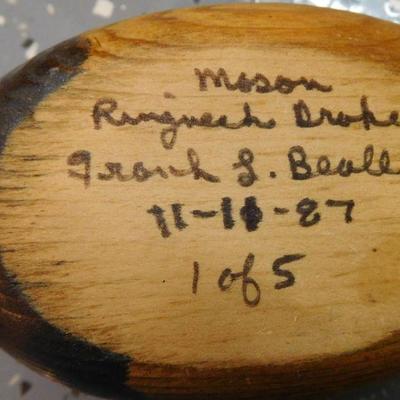 Mason
Ringneck Drake
Frank L. Beall
11-11-87
1 of 5